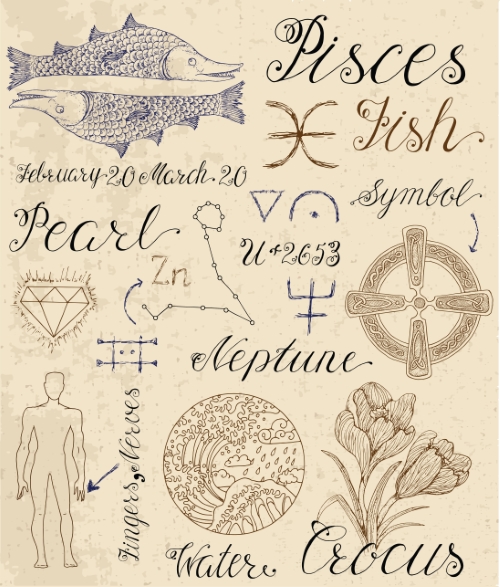 Pisces
Fish
February 20 March 20
Symbol
Pearl
Zn
U+2653
Neptune
Fingers, Nerves
Water
Crocus